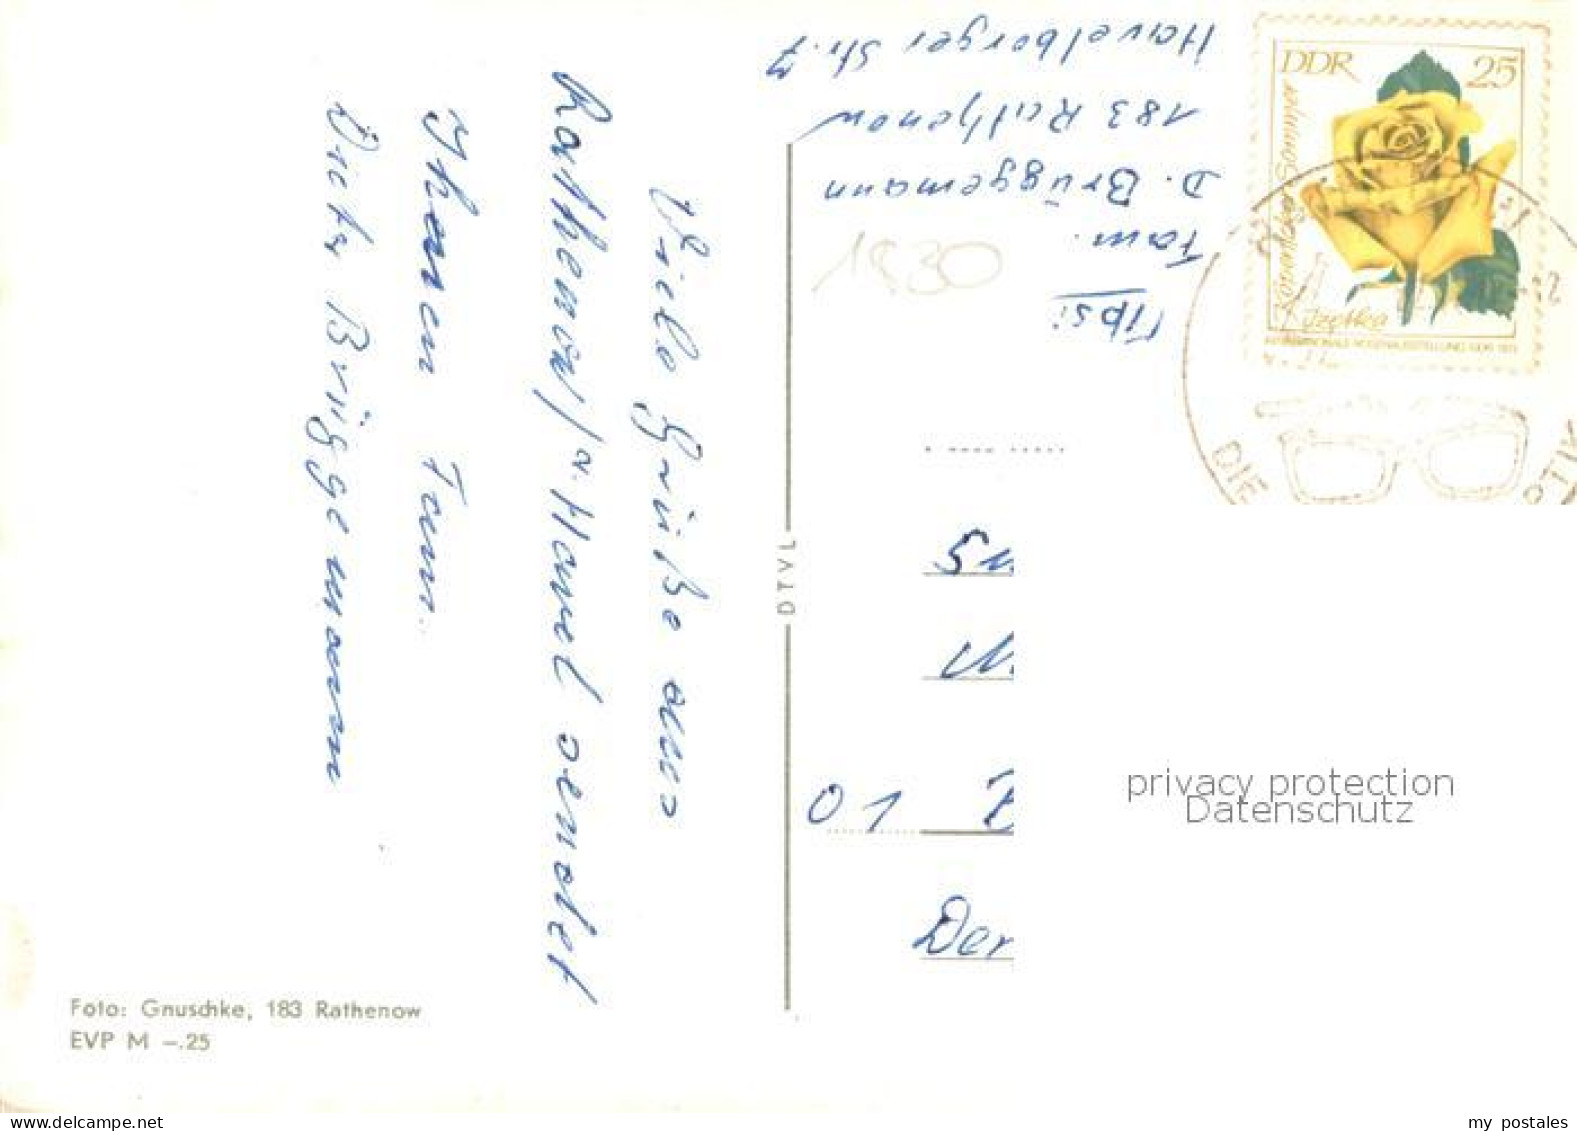 Viele Grüße aus
Rathenow/a. Havel sendet
Ihnen Fam.
Dieter Brüggemann
Abs:
Fam.
D. Brüggemann
183 Rathenow
Havelberger Str. 7
1830
DDR 25
Izetka
Köpenicker Sommer
INTERNATIONALE ROSENAUSSTELLUNG DDR 1972
DIE
DTVL
01
Der
privacy protection
Datenschutz
Foto: Gnuschke, 183 Rathenow
EVP M –.25
my postales
www.delcampe.net